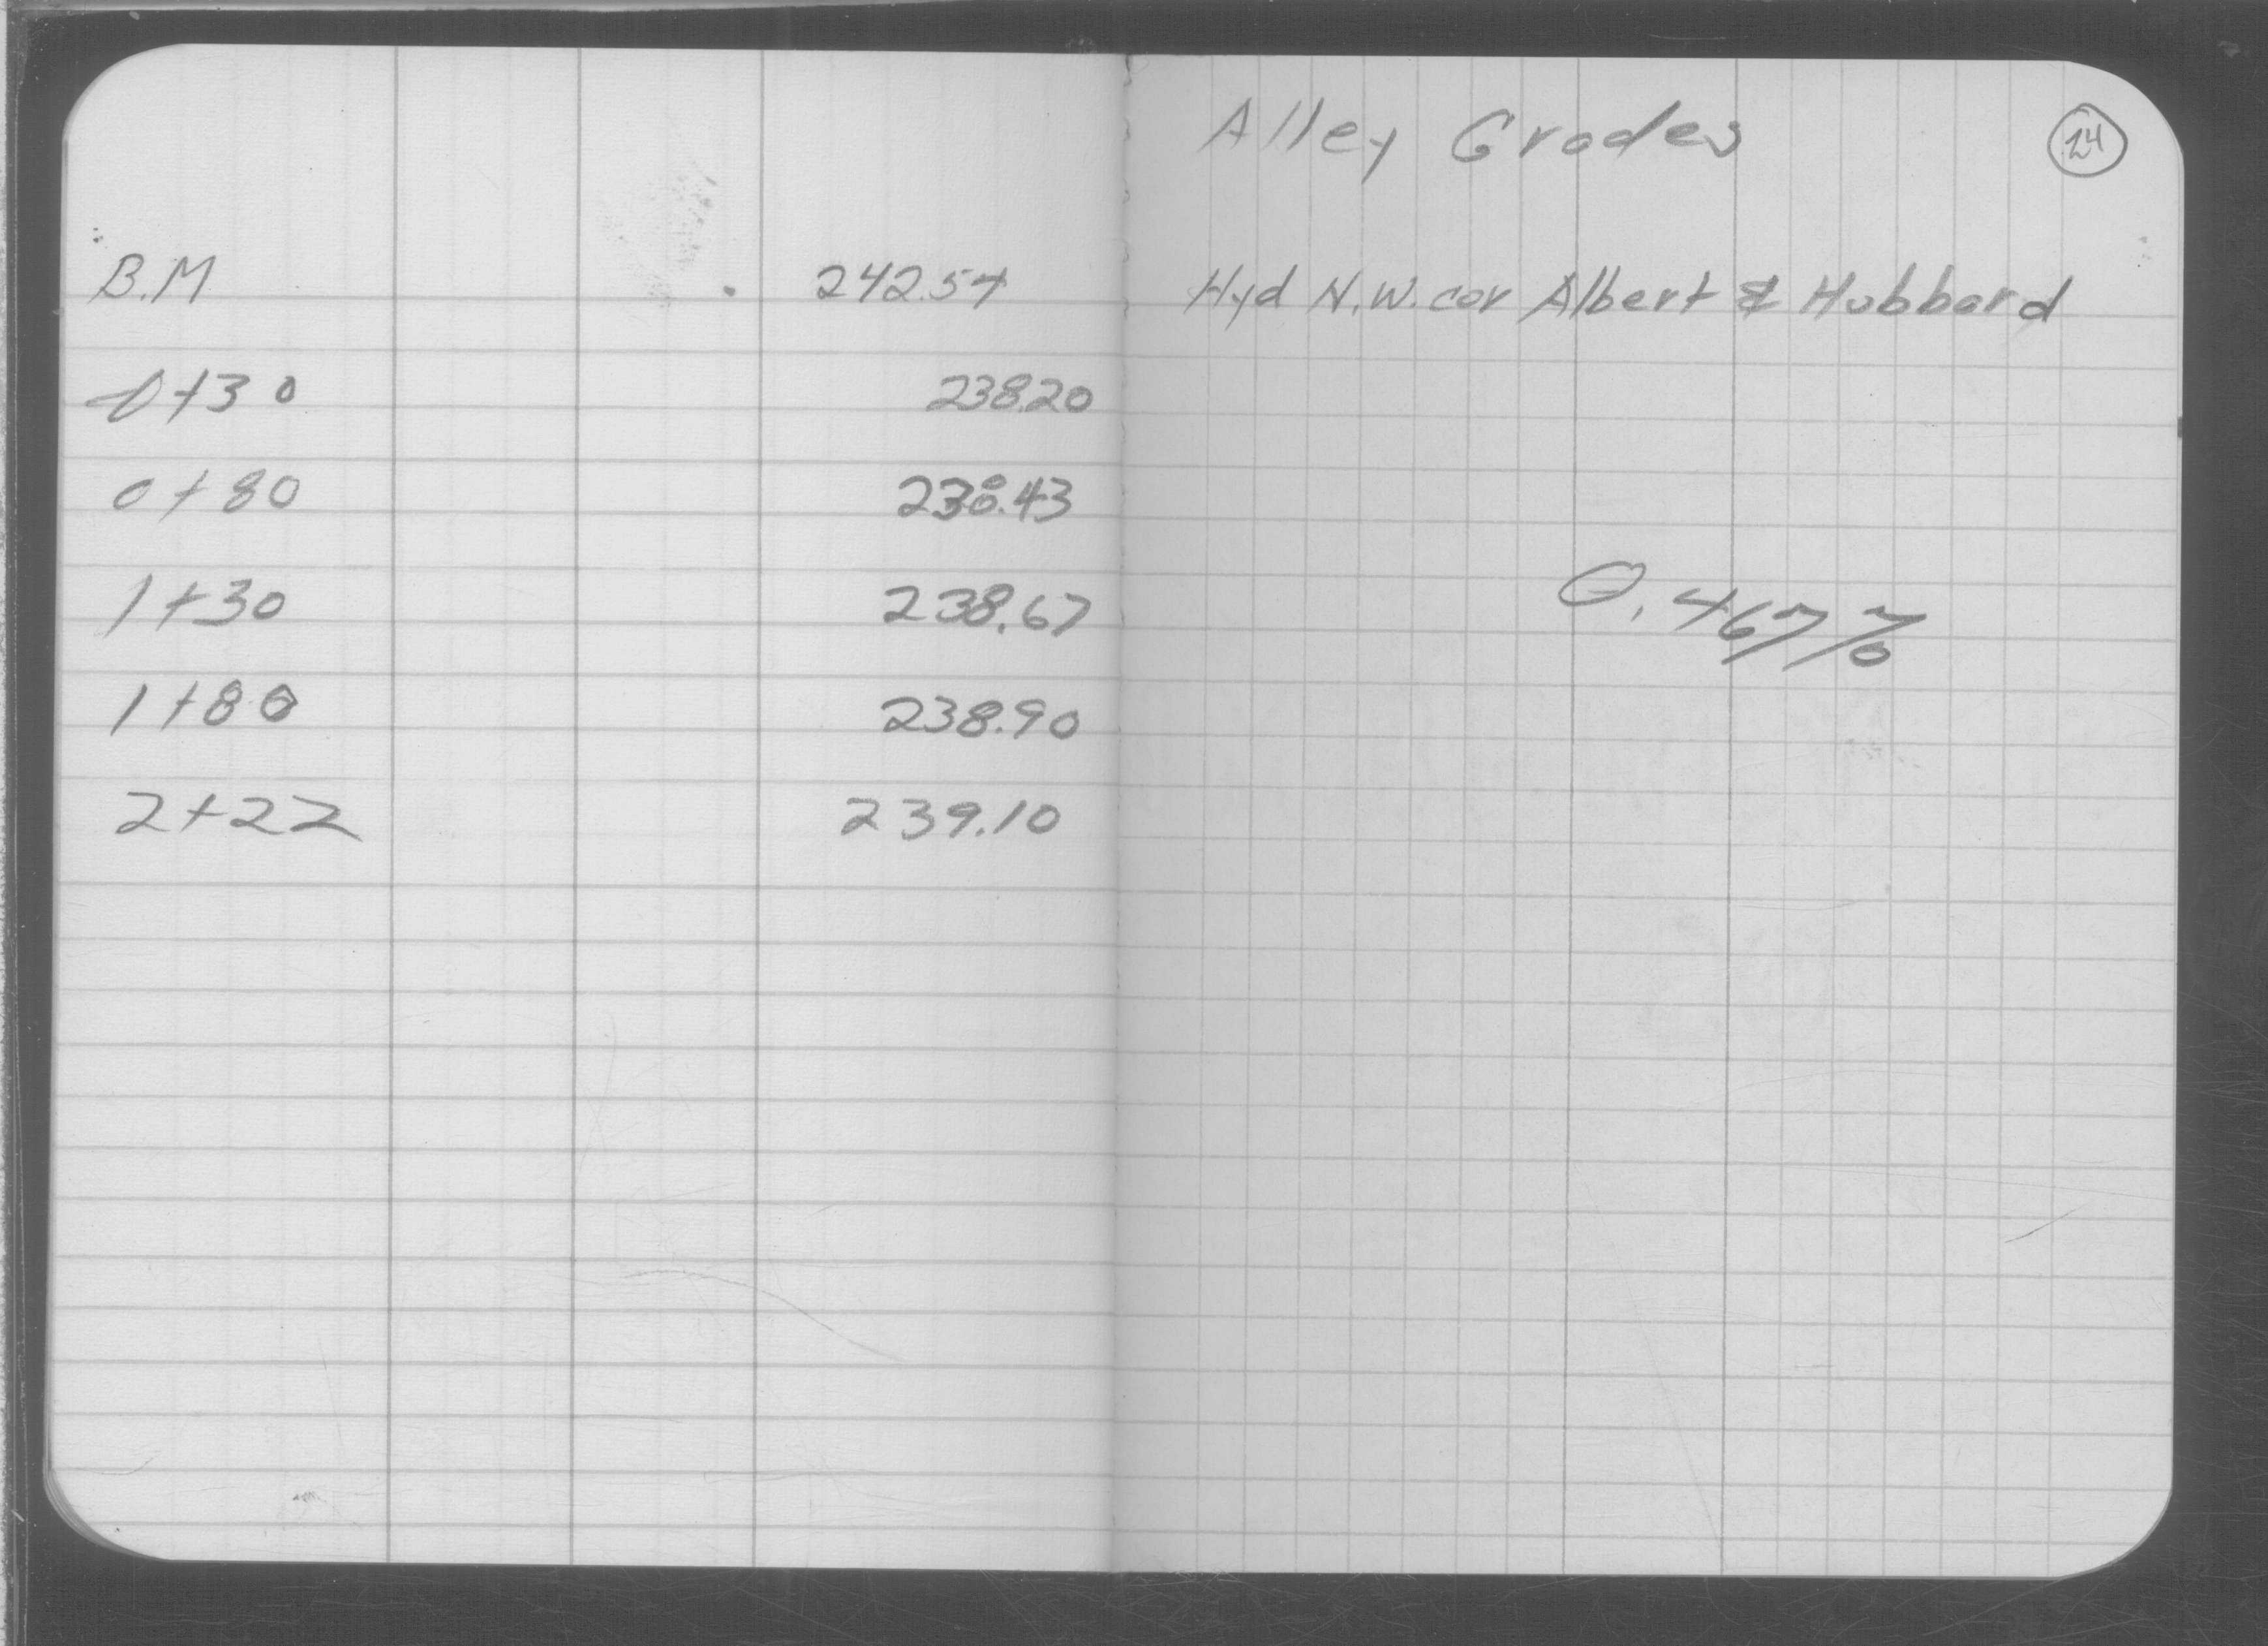 Alley Grades
24
B.M 242.54 Hyd N.W. cor Albert & Hubbard
0+30 238.20
0+80 238.43
1+30 238.67 0.467%
1+80 238.90
2+22 239.10